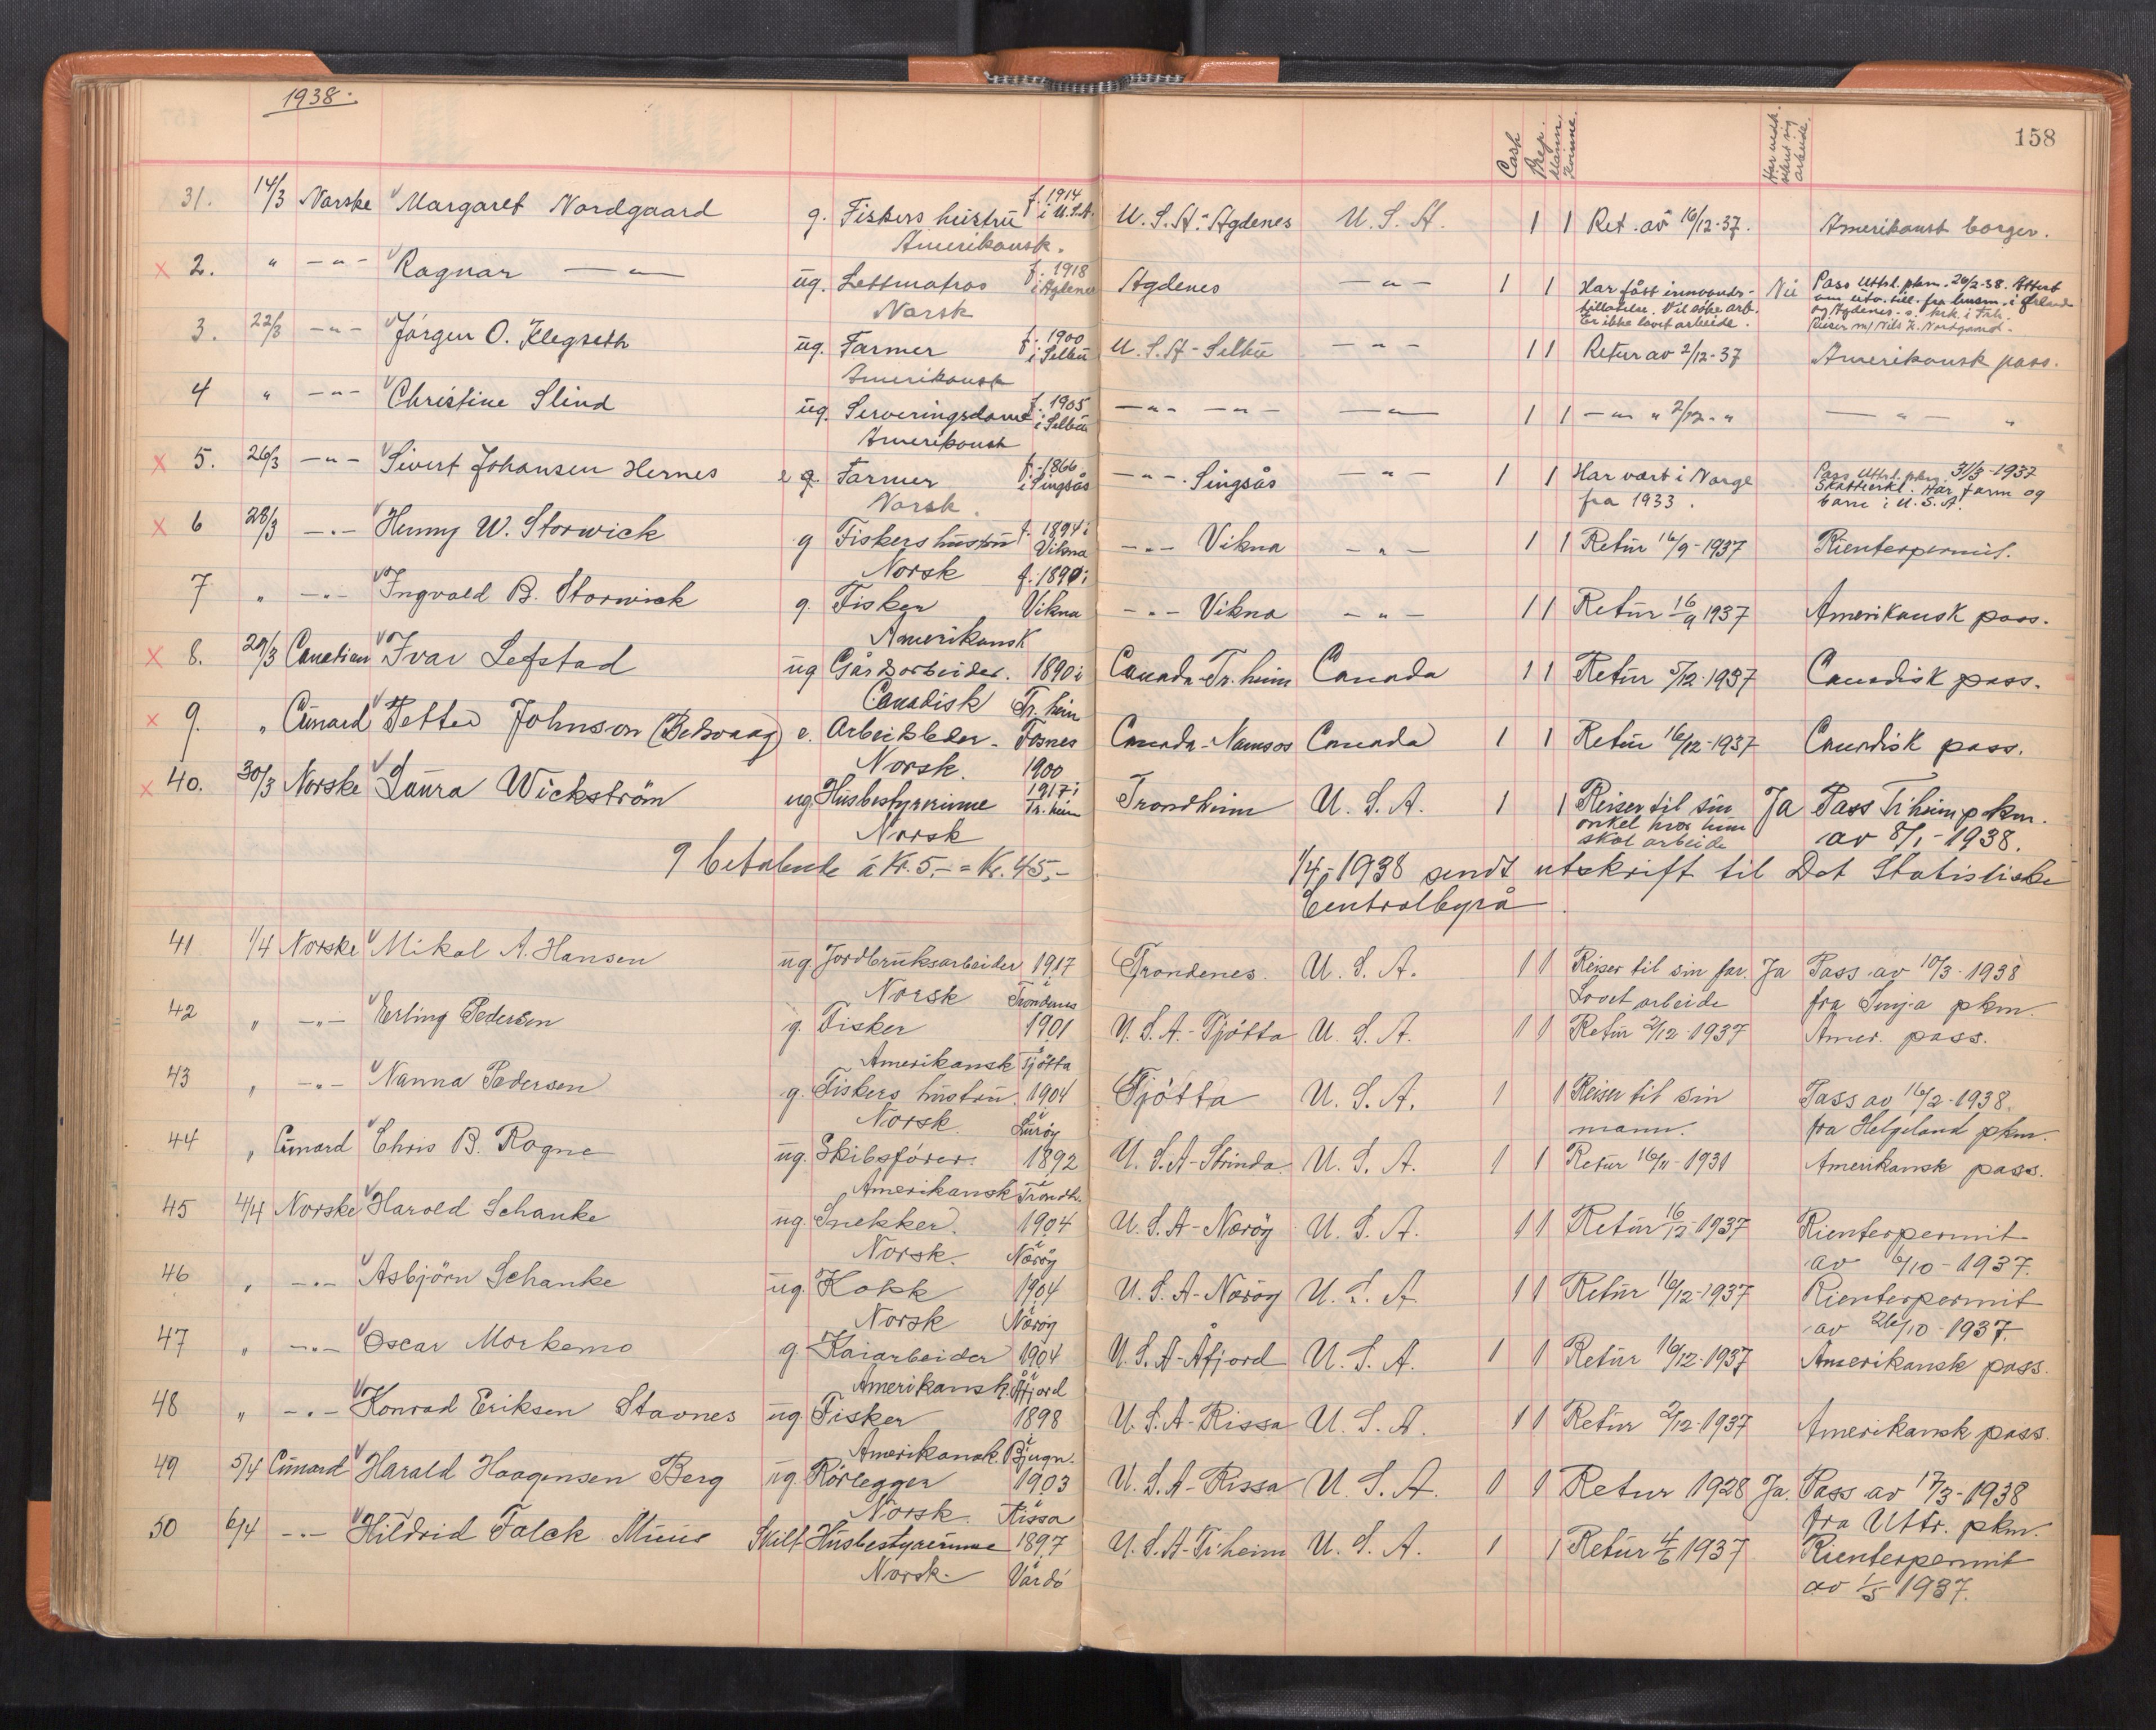 1938.
158
Cash
Prep.
Mann.
Kvinne.
Har vedk. sikret sig arbeide.
31. 14/3 Norske Margaret Nordgaard g. Fiskers hustru f. 1914 i U.S.A. U.S.A. - Agdenes U.S.A. 1 1 Ret. av 16/12-37. Amerikansk borger.
Amerikansk.
2. " -"- Ragnar -"- ug. Lettmatros f. 1918 i Agdenes Agdenes -"- 1 1 Har fått innvandr- Nei Pass Uttrl. pkm. 26/2-38. Attest
Norsk tillatelse. Vil söke arb. om utv. till. fra lensm. i Örland
Er ikke lovet arbeide. og Agdenes
Reiser m/ Nils K. Nordgaard.
3. 22/3 -"- Jörgen O. Klegseth ug. Farmer f. 1900 i Selbu U.S.A - Selbu -"- 1 1 Retur av 2/12-37 Amerikansk pass.
Amerikansk
4 " -"- Christine Slind ug. Serveringsdame f. 1905 i Selbu -"- -"- -"- 1 1 -"- " 2/12-" -"- "
Amerikansk
5. 26/3 -"- Sivert Johansen Hernes e. Farmer f. 1866 i Singsås -"- Singsås -"- 1 1 Har vært i Norge Pass Uttrl. pkm. 31/3-1937
Norsk. fra 1933. Skatteerkl. Har farm og
barn i U.S.A.
6 28/3 -"- Henny W. Storwick g Fiskers hustru f. 1894 i Vikna -"- Vikna -"- 1 1 Retur 16/9-1937 Rienterpermit.
Norsk
7 " -"- Ingvald B. Storwick g. Fisker f. 1890 i Vikna -"- Vikna -"- 1 1 Retur 16/9 1937 Amerikansk pass.
Amerikansk
8. 29/3 Canadian Ivar Lefstad ug Gårdsarbeider. 1890 i Tr.heim Canada-Tr.heim Canada 1 1 Retur 5/12-1937 Canadisk pass.
Canadisk
9. " Cunard Petter Johnson e. Arbeidsleder - Fosnes 1900 Canada-Namsos Canada 1 1 Retur 16/12-1937 Canadisk pass.
Norsk.
40. 30/3 Norske Laura Wickström ug. Husbestyrerinne 1917 i Tr.heim Trondheim U.S.A. 1 1 Reiser til sin Ja Pass Tr.heim pkm.
Norsk onkel hvor hun av 8/1-1938.
skal arbeide
9 betalende à Kr. 5,- = Kr. 45,-
1/4-1938 sendt utskrift til Det Statistiske
Centralbyrå.
41 1/4 Norske Mikal A. Hansen ug. Jordbruksarbeider 1917 Trondenes. U.S.A. 1 1 Reiser til sin far. Ja Pass av 10/3-1938
Norsk i Trondenes Lovet arbeide fra Senja pkm.
42 " -"- Erling Pedersen g. Fisker 1901 U.S.A.-Tjötta U.S.A. 1 1 Retur 2/12-1937 Amer. pass.
Amerikansk i Tjötta
43 " -"- Nanna Pedersen g. Fiskers hustru. 1904 Tjötta U.S.A. 1 1 Reiser til sin Pass av 16/2-1938.
Norsk. i Luröy mann. fra Helgeland pkm.
44 " Cunard Chris B. Rogne ug. Skibsförer. 1892 U.S.A-Strinda U.S.A. 1 1 Retur 16/11-1931 Amerikansk pass.
Amerikansk i Trondh.
45 4/4 Norske Harold Schanke ug. Snekker. 1904 U.S.A-Naröy U.S.A. 1 1 Retur 16/12-1937 Rienterpermit
Norsk. i Naröy av 6/10-1937.
46 " -"- Asbjörn Schanke ug. Kokk 1904 U.S.A-Naröy U.S.A. 1 1 Retur 16/12-1937 Rienterpermit
Norsk i Naröy av 26/10-1937.
47 " -"- Oscar Morkemo g. Kaiarbeider 1904 U.S.A-Åfjord U.S.A. 1 1 Retur 16/12-1937 Amerikansk pass.
Amerikansk. i Åfjord
48 " -"- Konrad Eriksen Stavnes ug Fisker 1898 U.S.A-Rissa U.S.A. 1 1 Retur 2/12-1937 Amerikansk pass.
Amerikansk. i Bjugn.
49 5/4 Cunard Harald Haagensen Berg ug. Rörlegger 1903 U.S.A-Rissa U.S.A. 1 1 Retur 1928 Ja. Pass av 17/3-1938
Norsk. Rissa fra Uttr. pkm.
50 6/4 -"- Hildrid Falck Muus Skilt Husbestyrerinne 1897 U.S.A-Tr.heim U.S.A. 1 1 Retur 4/6 1937 Rienterpermit
Norsk. i Vardö av 1/5 1937.